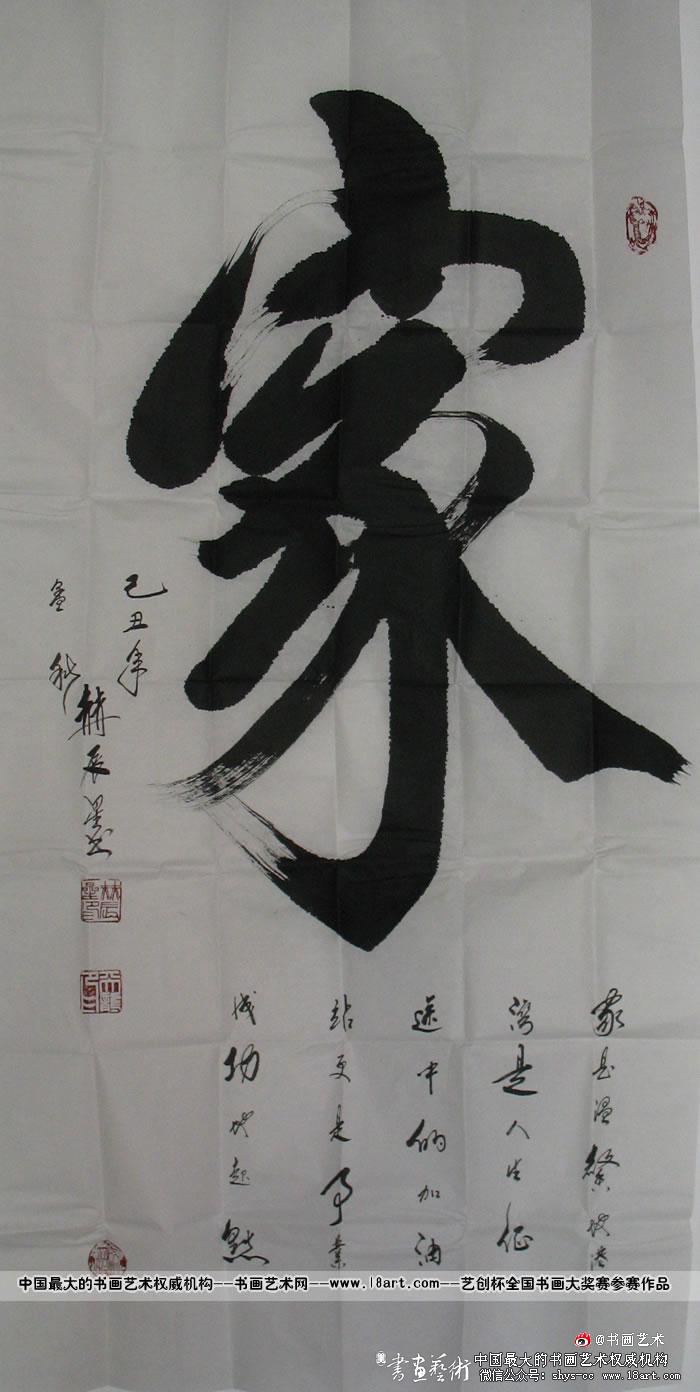 家
家是温馨的港
湾是人生征
途中的加油
站更是事業
成功的起點
己丑年
孟秋林辰星书
林辰
中国最大的书画艺术权威机构——书画艺术网——www.18art.com——艺创杯全国书画大奖赛参赛作品
@书画艺术
書畫藝術
中国最大的书画艺术权威机构
微信公众号: shys-cc www.18art.com